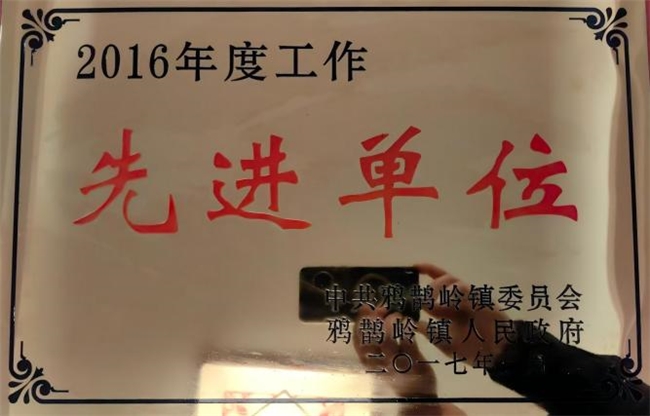 2016年度工作
先进单位
中共鸦鹊岭镇委员会
鸦鹊岭镇人民政府
二〇一七年